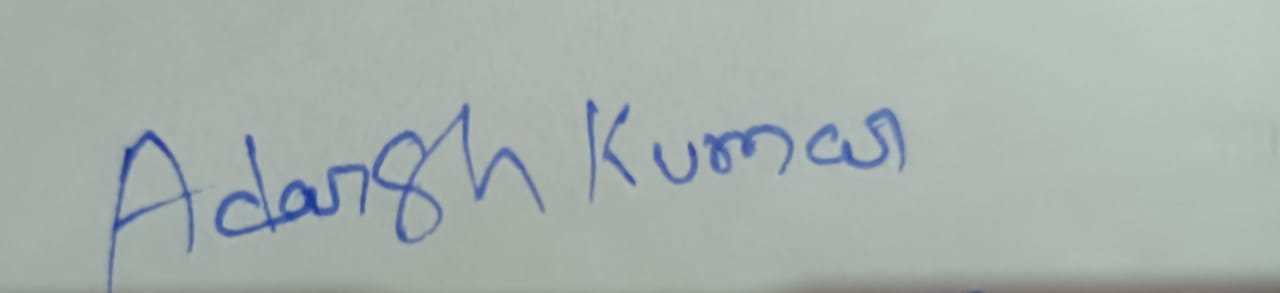 Adarsh Kumar